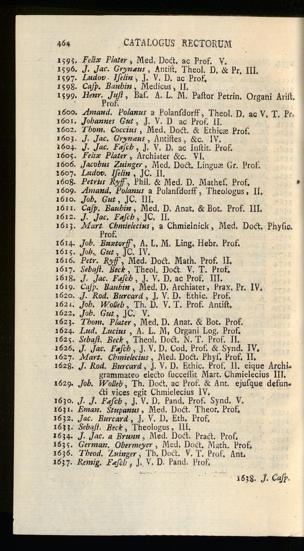 464 CATALOGUS RECTORUM
1595. Felix Plater, Med. Doct. ac Prof. V.
1596. J. Jac. Grynæus, Antist. Theol. D. & Pr. III.
1597. Ludov. Iselin, J. V. D. ac Prof.
1598. Casp. Bauhin, Medicus, II.
1599. Henr. Just, Bas. A. L. M. Pastor Petrin. Organi Arist.
Prof.
1600. Amand. Polanus a Polansdorff, Theol. D. ac V. T. Pr.
1601. Johannes Gut, J. V. D ac Prof. II.
1602. Thom. Coccius, Med. Doct. & Ethicæ Prof.
1603. J. Jac. Grynæus, Antistes, &c. IV.
1604. J. Jac. Fæsch, J. V. D. ac Instit. Prof.
1605. Felix Plater, Archiater &c. VI.
1606. Jacobus Zuinger, Med. Doct. Linguæ Gr. Prof.
1607. Ludov. Iselin, JC. II.
1608. Petrus Ryff, Phil. & Med. D. Mathes. Prof.
1609. Amand. Polanus a Polansdorff, Theologus, II.
1610. Job. Gut, JC. III.
1611. Casp. Bauhin, Med. D. Anat. & Bot. Prof. III.
1612. J. Jac. Fæsch, JC. II.
1613. Mart. Chmielecius, a Chmielnick, Med. Doct. Physic.
Prof.
1614. Joh. Buxtorff, A. L. M. Ling. Hebr. Prof.
1615. Joh. Gut, JC. IV.
1616. Petr. Ryff, Med. Doct. Math. Prof. II.
1617. Sebast. Beck, Theol. Doct. V. T. Prof.
1618. J. Jac. Fæsch, J. V. D. ac Prof. III.
1619. Casp. Bauhin, Med. D. Archiater, Prax. Pr. IV.
1620. J. Rod. Burcard, J. V. D. Ethic. Prof.
1621. Joh. Wolleb, Th. D. V. T. Prof. Antist.
1622. Joh. Gut, JC. V.
1623. Thom. Plater, Med. D. Anat. & Bot. Prof.
1624. Lud. Lucius, A. L. M. Organi Log. Prof.
1625. Sebast. Beck, Theol. Doct. N. T. Prof. II.
1626. J. Jac. Fæsch, J. V. D. Cod. Prof. & Synd. IV.
1627. Mart. Chmielecius, Med. Doct. Phys. Prof. II.
1628. J. Rod. Burcard, J. V. D. Ethic. Prof. II. eique Archi-
grammateo electo successit Mart. Chmielecius III.
1629. Joh. Wolleb, Th. Doct. ac Prof. & Ant. ejusque defun-
cti vices egit Chmielecius IV.
1630. J. J. Fæsch, J. V. D. Pand. Prof. Synd. V.
1631. Eman. Stupanus, Med. Doct. Theor. Prof.
1632. Jac. Burcard, J. V. D. Eth. Prof.
1633. Sebast. Beck, Theologus, III.
1634. J. Jac. a Brunn, Med. Doct. Pract. Prof.
1635. German. Obermeyer, Med. Doct. Math. Prof.
1636. Theod. Zuinger, Th. Doct. V. T. Prof. Ant.
1637. Remig. Fæsch, J. V. D. Pand. Prof.
1638. J. Casp.